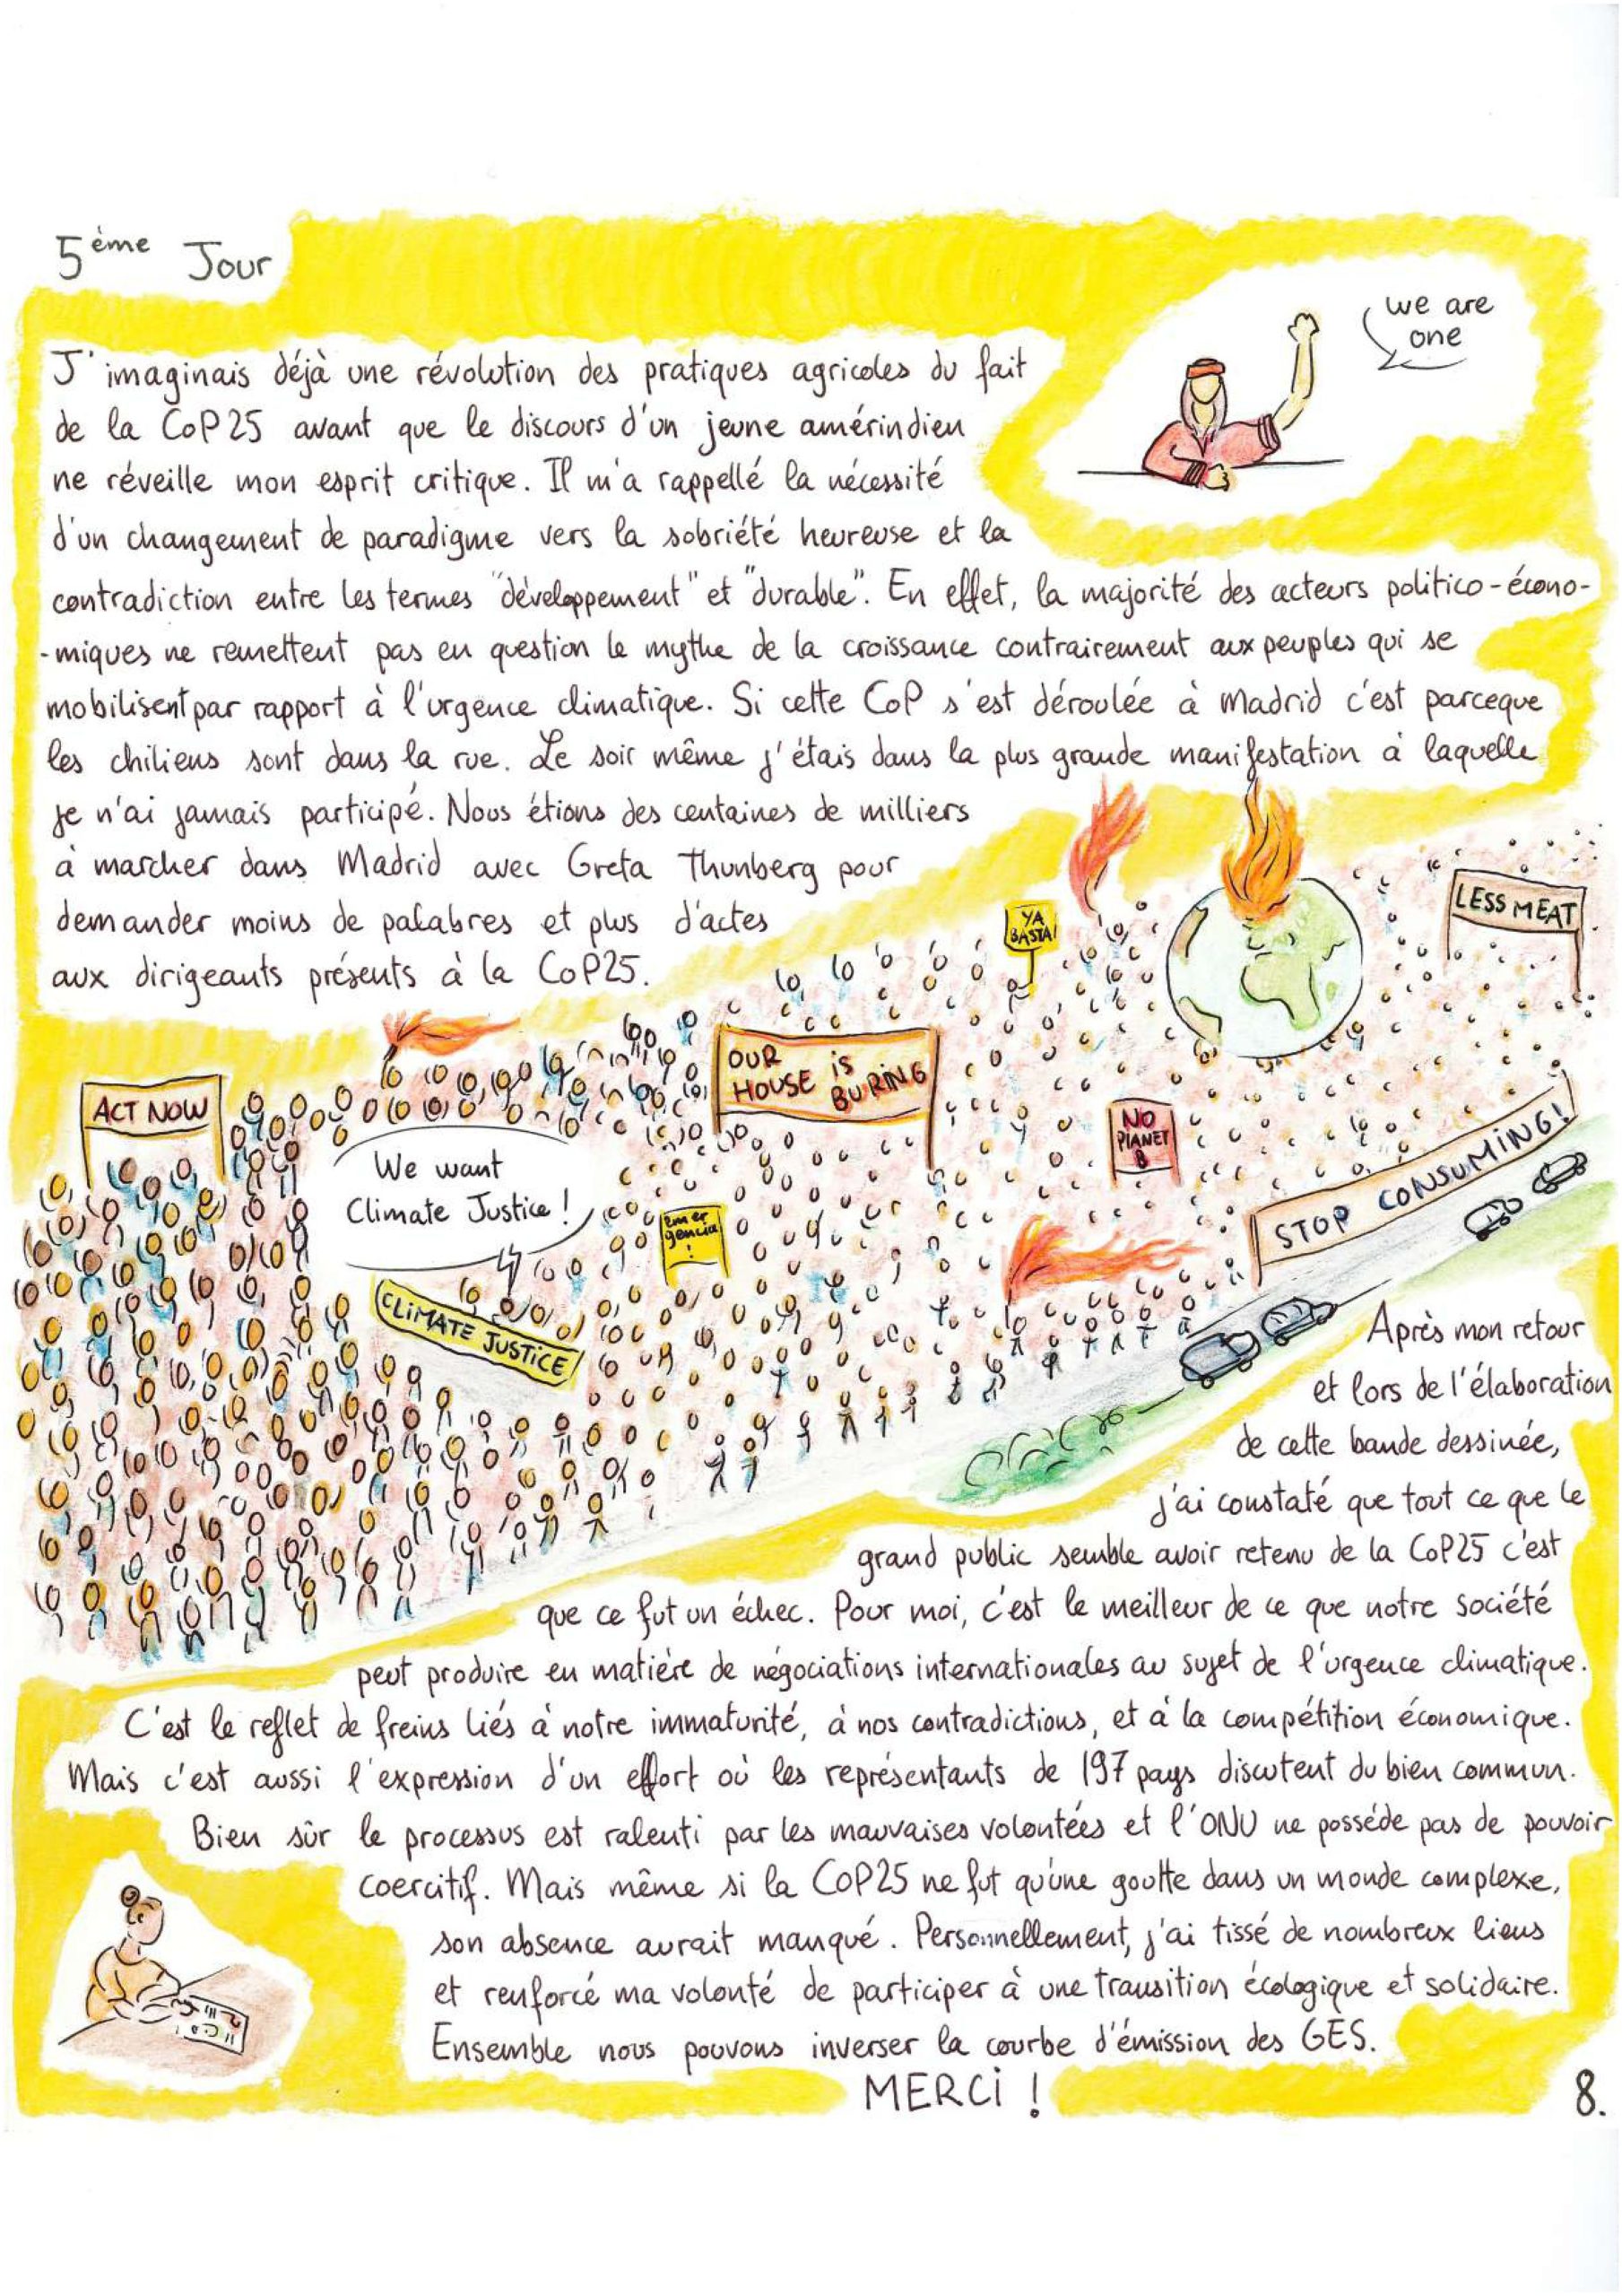 5ème Jour
we are
one
J'imaginais déjà une révolution des pratiques agricoles du fait
de la CoP25 avant que le discours d'un jeune amérindien
ne réveille mon esprit critique. Il m'a rappellé la nécessité
d'un changement de paradigme vers la sobriété heureuse et la
contradiction entre les termes "développement" et "durable". En effet, la majorité des acteurs politico-écono-
-miques ne remettent pas en question le mythe de la croissance contrairement aux peuples qui se
mobilisent par rapport à l'urgence climatique. Si cette CoP s'est déroulée à Madrid c'est parceque
les chiliens sont dans la rue. Le soir même j'étais dans la plus grande manifestation à laquelle
je n'ai jamais participé. Nous étions des centaines de milliers
à marcher dans Madrid avec Greta Thunberg pour
demander moins de palabres et plus d'actes
aux dirigeants présents à la CoP25.
LESS MEAT
YA
BASTA!
OUR
HOUSE is
BURiNG
ACT NOW
NO
PlANET
B
STOP CONSUMiNG!
We want
Climate Justice!
Emer
gencia
!
CLiMATE JUSTiCE
Après mon retour
et lors de l'élaboration
de cette bande dessinée,
j'ai constaté que tout ce que le
grand public semble avoir retenu de la CoP25 c'est
que ce fut un échec. Pour moi, c'est le meilleur de ce que notre société
peut produire en matière de négociations internationales au sujet de l'urgence climatique.
C'est le reflet de freins liés à notre immaturité, à nos contradictions, et à la compétition économique.
Mais c'est aussi l'expression d'un effort où les représentants de 197 pays discutent du bien commun.
Bien sûr le processus est ralenti par les mauvaises volontées et l'ONU ne posséde pas de pouvoir
coercitif. Mais même si la CoP25 ne fut qu'une goutte dans un monde complexe,
son absence aurait manqué. Personnellement, j'ai tissé de nombreux liens
et renforcé ma volonté de participer à une transition écologique et solidaire.
Ensemble nous pouvons inverser la courbe d'émission des GES.
MERCi !
8.